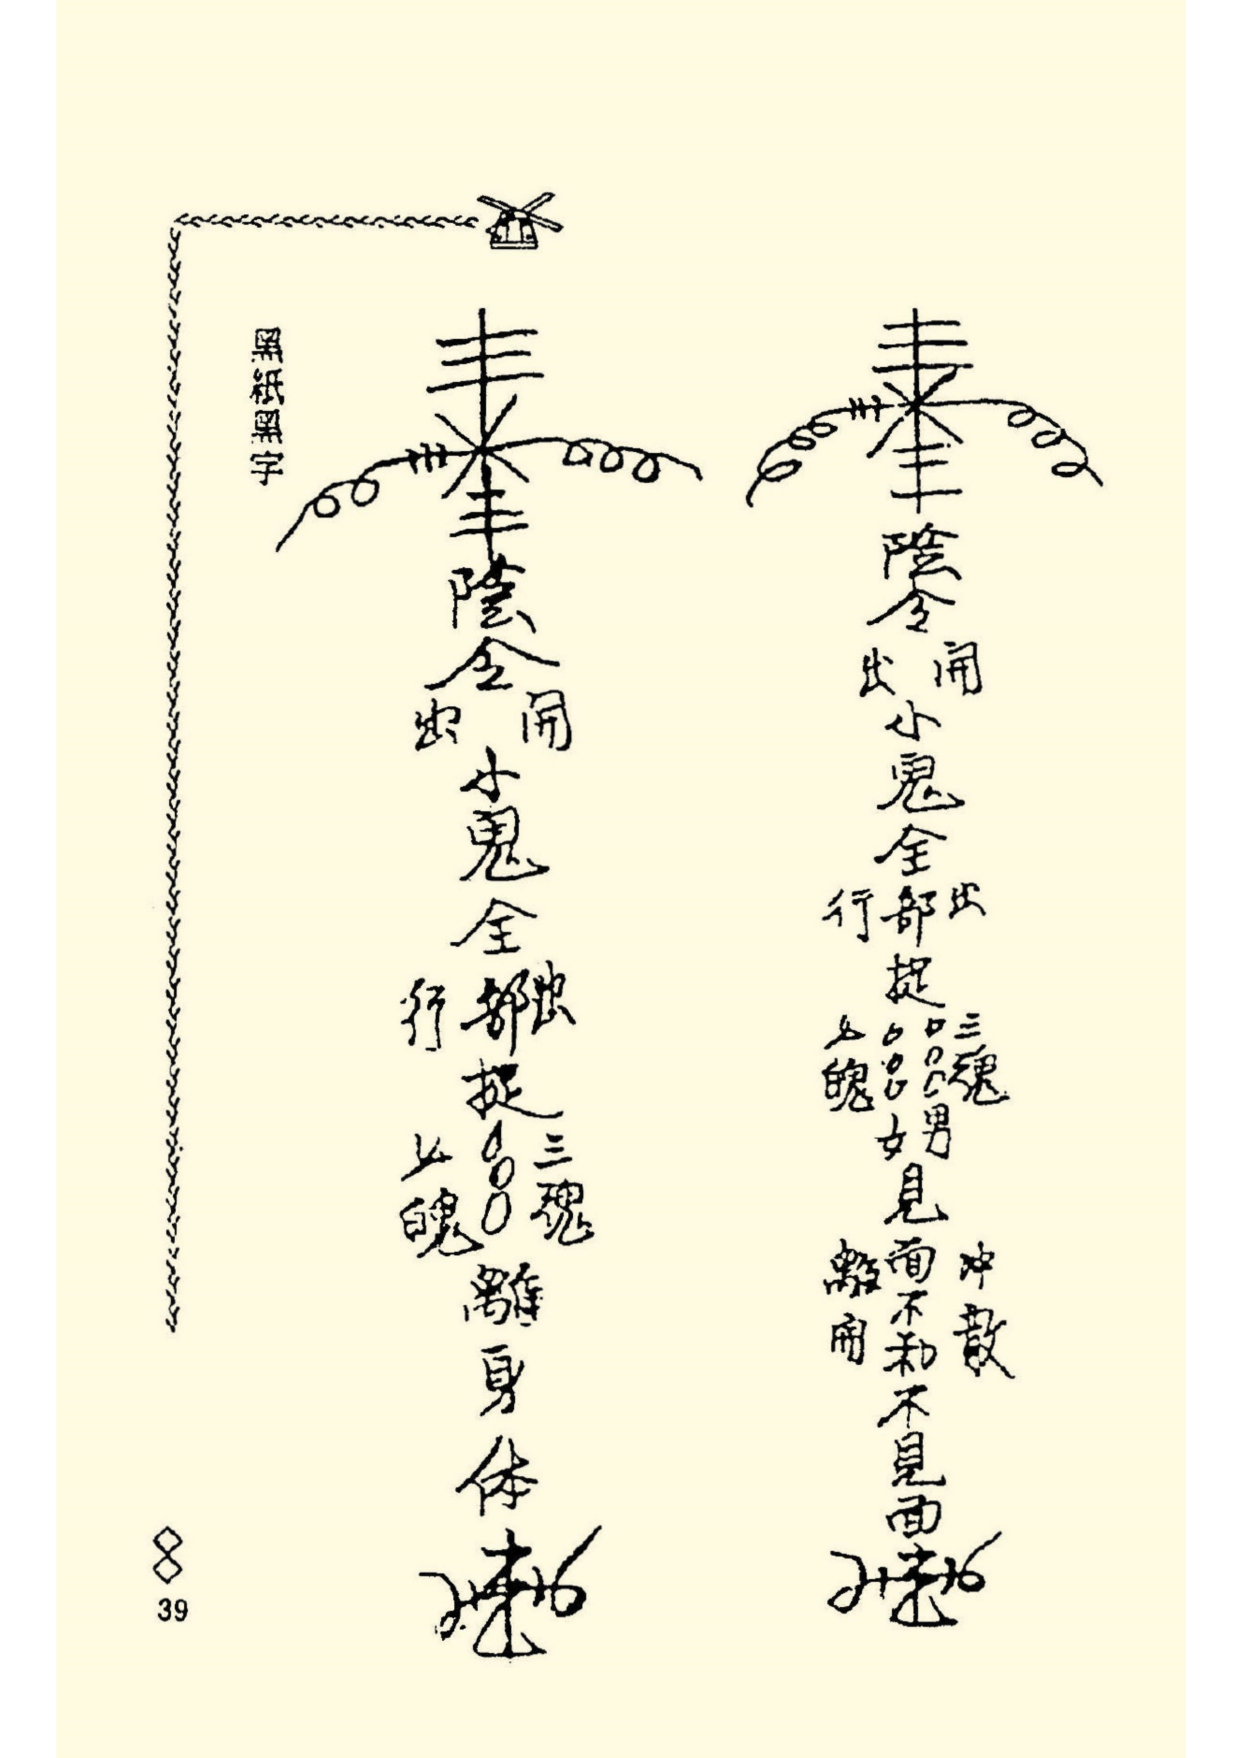 陰
令
開
出
小
鬼
全
出部行
捉
三魂
○○○男
○○○女
七魄
見
面
不
和
不
見
面
冲散
離開
陰
令
開
出
小
鬼
全
出部行
捉
三魂
○○○
七魄
離
身
体
黑紙黑字
39